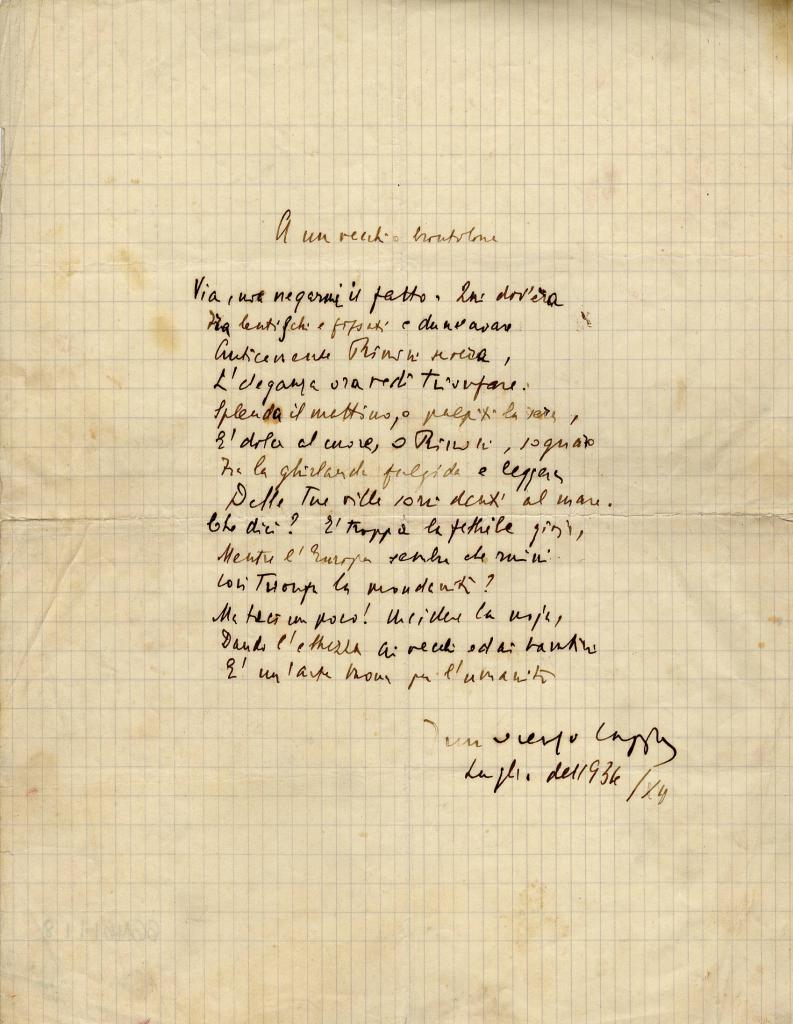 A un vecchio brontolone
Via, non negarmi il fatto. Qui dov'era
Fra lentischi e fossati e dune avare
Rimini
L'eleganza ora vedi trionfare.
Splenda il mattino, o palpiti la sera,
E' dolce al cuore, o Rimini, sognare
Fra la ghirlanda fulgida e leggera
Delle tue ville sorridenti al mare.
Che dici? E' troppa la febbrile gioia,
Mentre l'Europa sembra che rovini
Così trionfa la mondanità?
Ma taci un poco! Uccidere la noja,
Dando l'ebbrezza ai vecchi ed ai bambini
E' un'arte buona per l'umanità
Luglio del 1936 /XIV